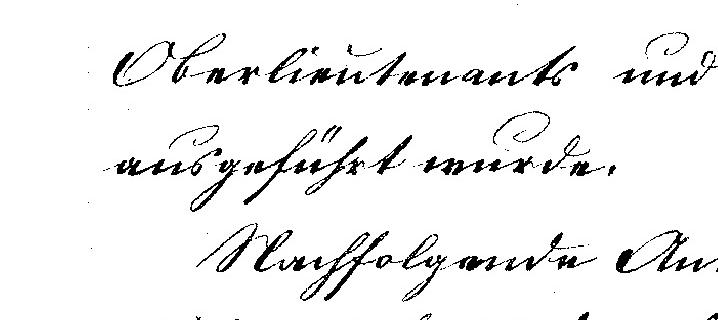 Oberlieutenants und
ausgeführt wurde.
Nachfolgende An